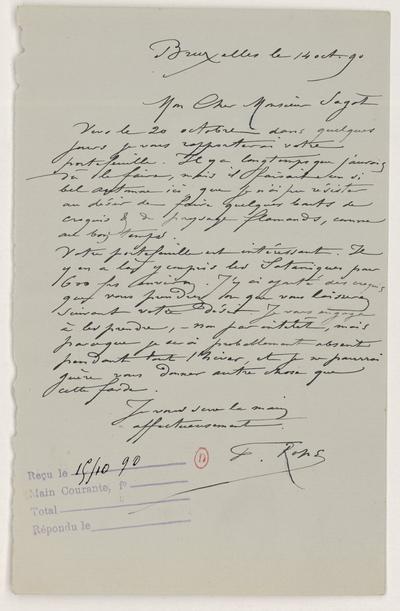 Bruxelles le 14 oct. 90
Mon Cher Monsieur Sagot
Vers le 20 octobre dans quelques
jours je vous rapporterai votre
portefeuille. Il y a longtemps que j'aurais
dû le faire, mais il faisait un si
bel automne ici que je n'ai pu résister
au désir de faire quelques bouts de
croquis & de paysage flamands, comme
au bon temps.
Votre portefeuille est intéressant. Il
y en a là, y compris les Sataniques pour
600 frs environ. J'y ai ajouté des croquis
que vous prendrez ou que vous laisserez
suivant votre désir. Je vous engage
à les prendre, – non par intérêt, mais
parceque je serai probablement absent
pendant tout l'hiver, et je ne pourrai
guère vous donner autre chose que
cette farde.
Je vous serre la main
affectueusement.
F. Rops
Reçu le 15/10 90
Main Courante, fo
Total
Répondu le